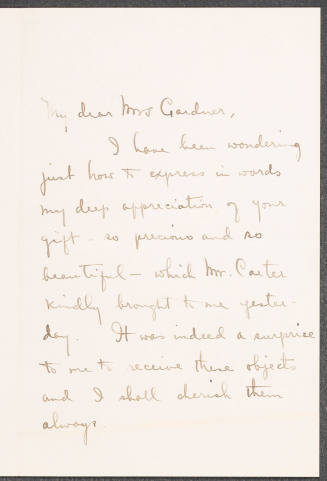 My dear Mrs Gardner,
I have been wondering
just how to express in words
my deep appreciation of your
gift - so precious and so
beautiful - which Mr. Carter
kindly brought to me yester-
day. It was indeed a surprise
to me to receive these objects
and I shall cherish them
always.